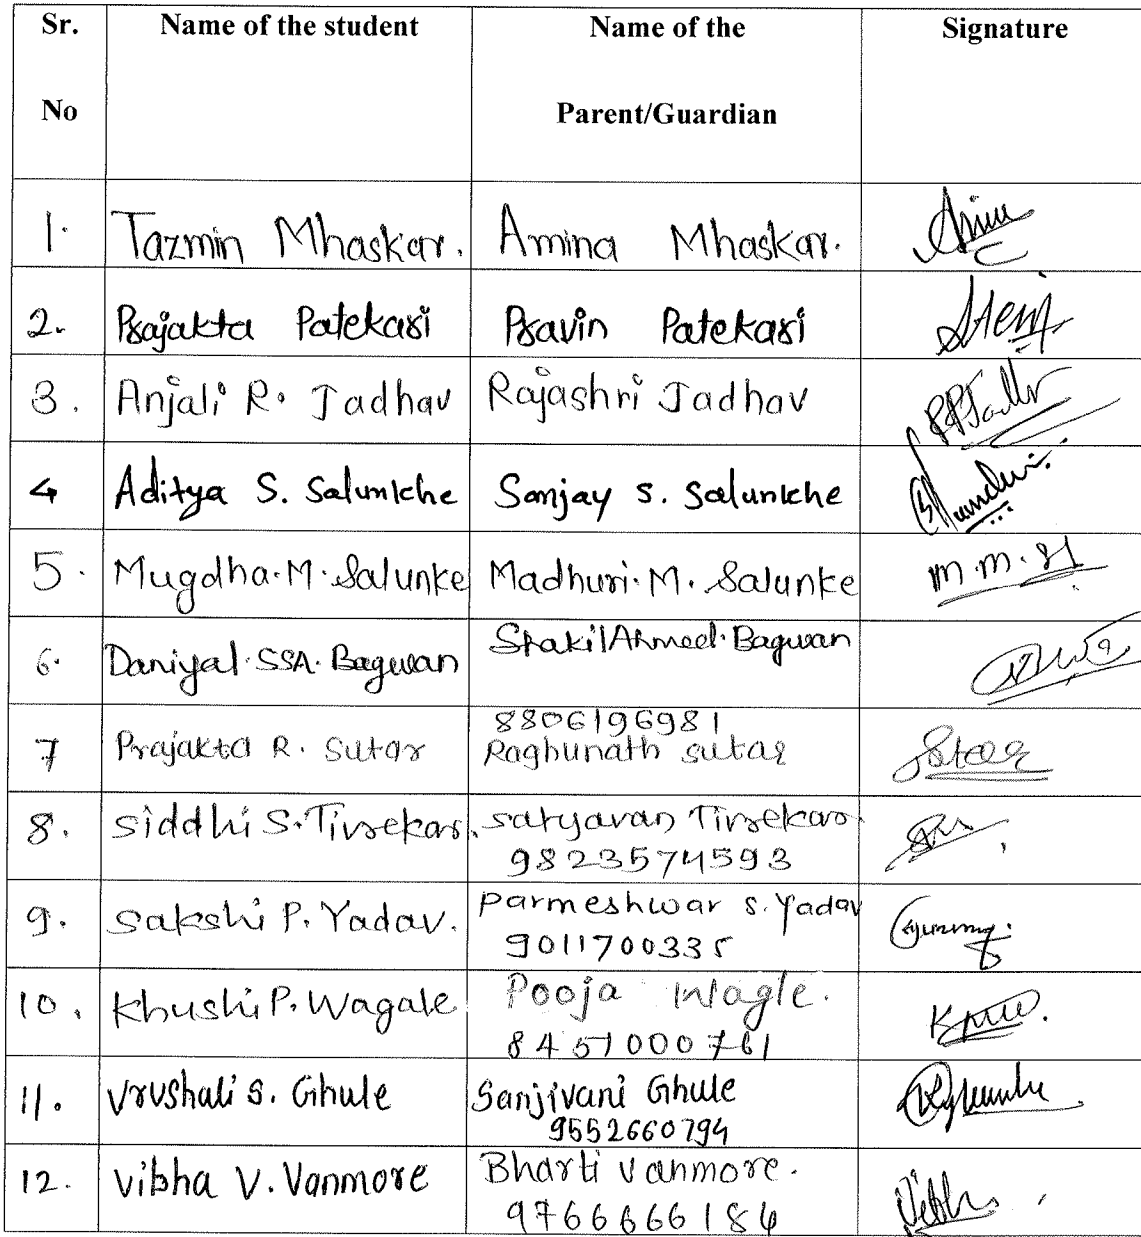 Sr. No Name of the student Name of the Parent/Guardian Signature
1. Tazmin Mhaskar. Amina Mhaskar.
2. Prajakta Patekari Pravin Patekari
3. Anjali R. Jadhav Rajashri Jadhav
4 Aditya S. Salunkhe Sanjay S. Salunkhe
5. Mugdha.M.Salunke Madhuri.M.Salunke m.m.
6. Daniyal.SSA.Bagwan ShakilAhmed.Bagwan
8806196981
7 Prajakta R. Sutar Raghunath sutar
8. Siddhi S.Tivrekar. Satyavan Tivrekar.
9823574593
9. Sakshi P. Yadav. Parmeshwar S. Yadav
9011700335
10. Khushi P. Wagale Pooja Wagle.
8451000761
11. Vrushali S. Ghule Sanjivani Ghule
9552660794
12. Vibha V. Vanmore Bharti Vanmore.
9766666184